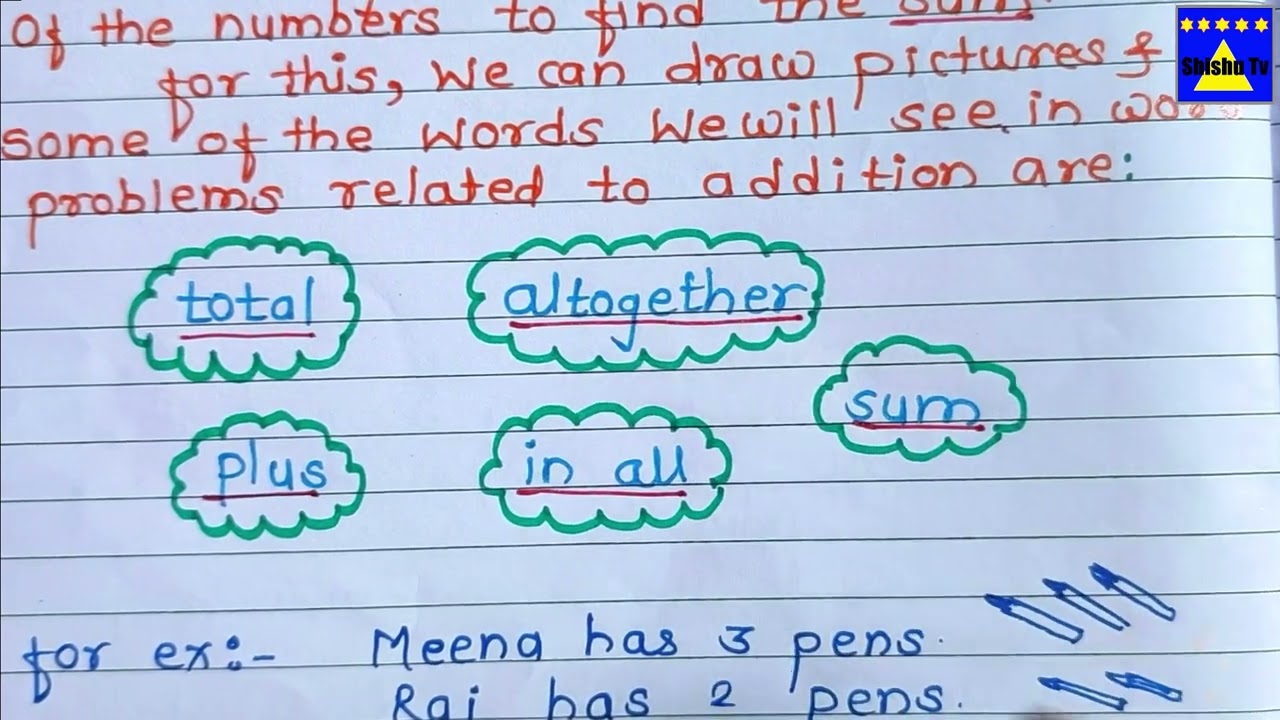 of the numbers to find the sum
for this, we can draw pictures &
some of the words we will see in
problems related to addition are:
total
altogether
sum
plus
in all
for ex:- Meena has 3 pens.
Raj has 2 pens.
Shishu Tv